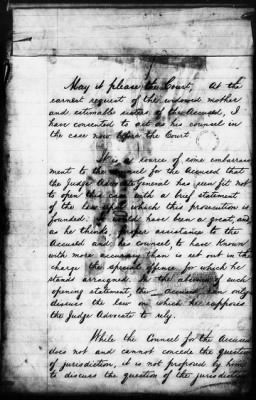 May it please the Court, At the
earnest request of the widowed mother
and estimable sisters of the Accused, I
have consented to act as his counsel in
the case now before the Court
It is a source of some embarrass
ment to the counsel for the Accused that
the Judge Advocate General has seen fit not
to open this case with a brief statement
of the law upon which this prosecution is
founded. It would have been a great, and
as he thinks, proper assistance to the
Accused and his counsel, to have known
with more accuracy than is set out in the
charge the special offence for which he
stands arraigned. In the absence of such
opening statement, the Accused can only
discuss the law on which he supposes
the Judge Advocate to rely.
While the Counsel for the Accused
does not and cannot concede the question
of jurisdiction, it is not proposed by him
to discuss the question of the jurisdiction